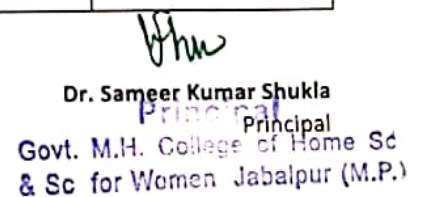 Dr. Sameer Kumar Shukla
Principal
Principal
Govt. M.H. College of Home Sc
& Sc for Women Jabalpur (M.P.)